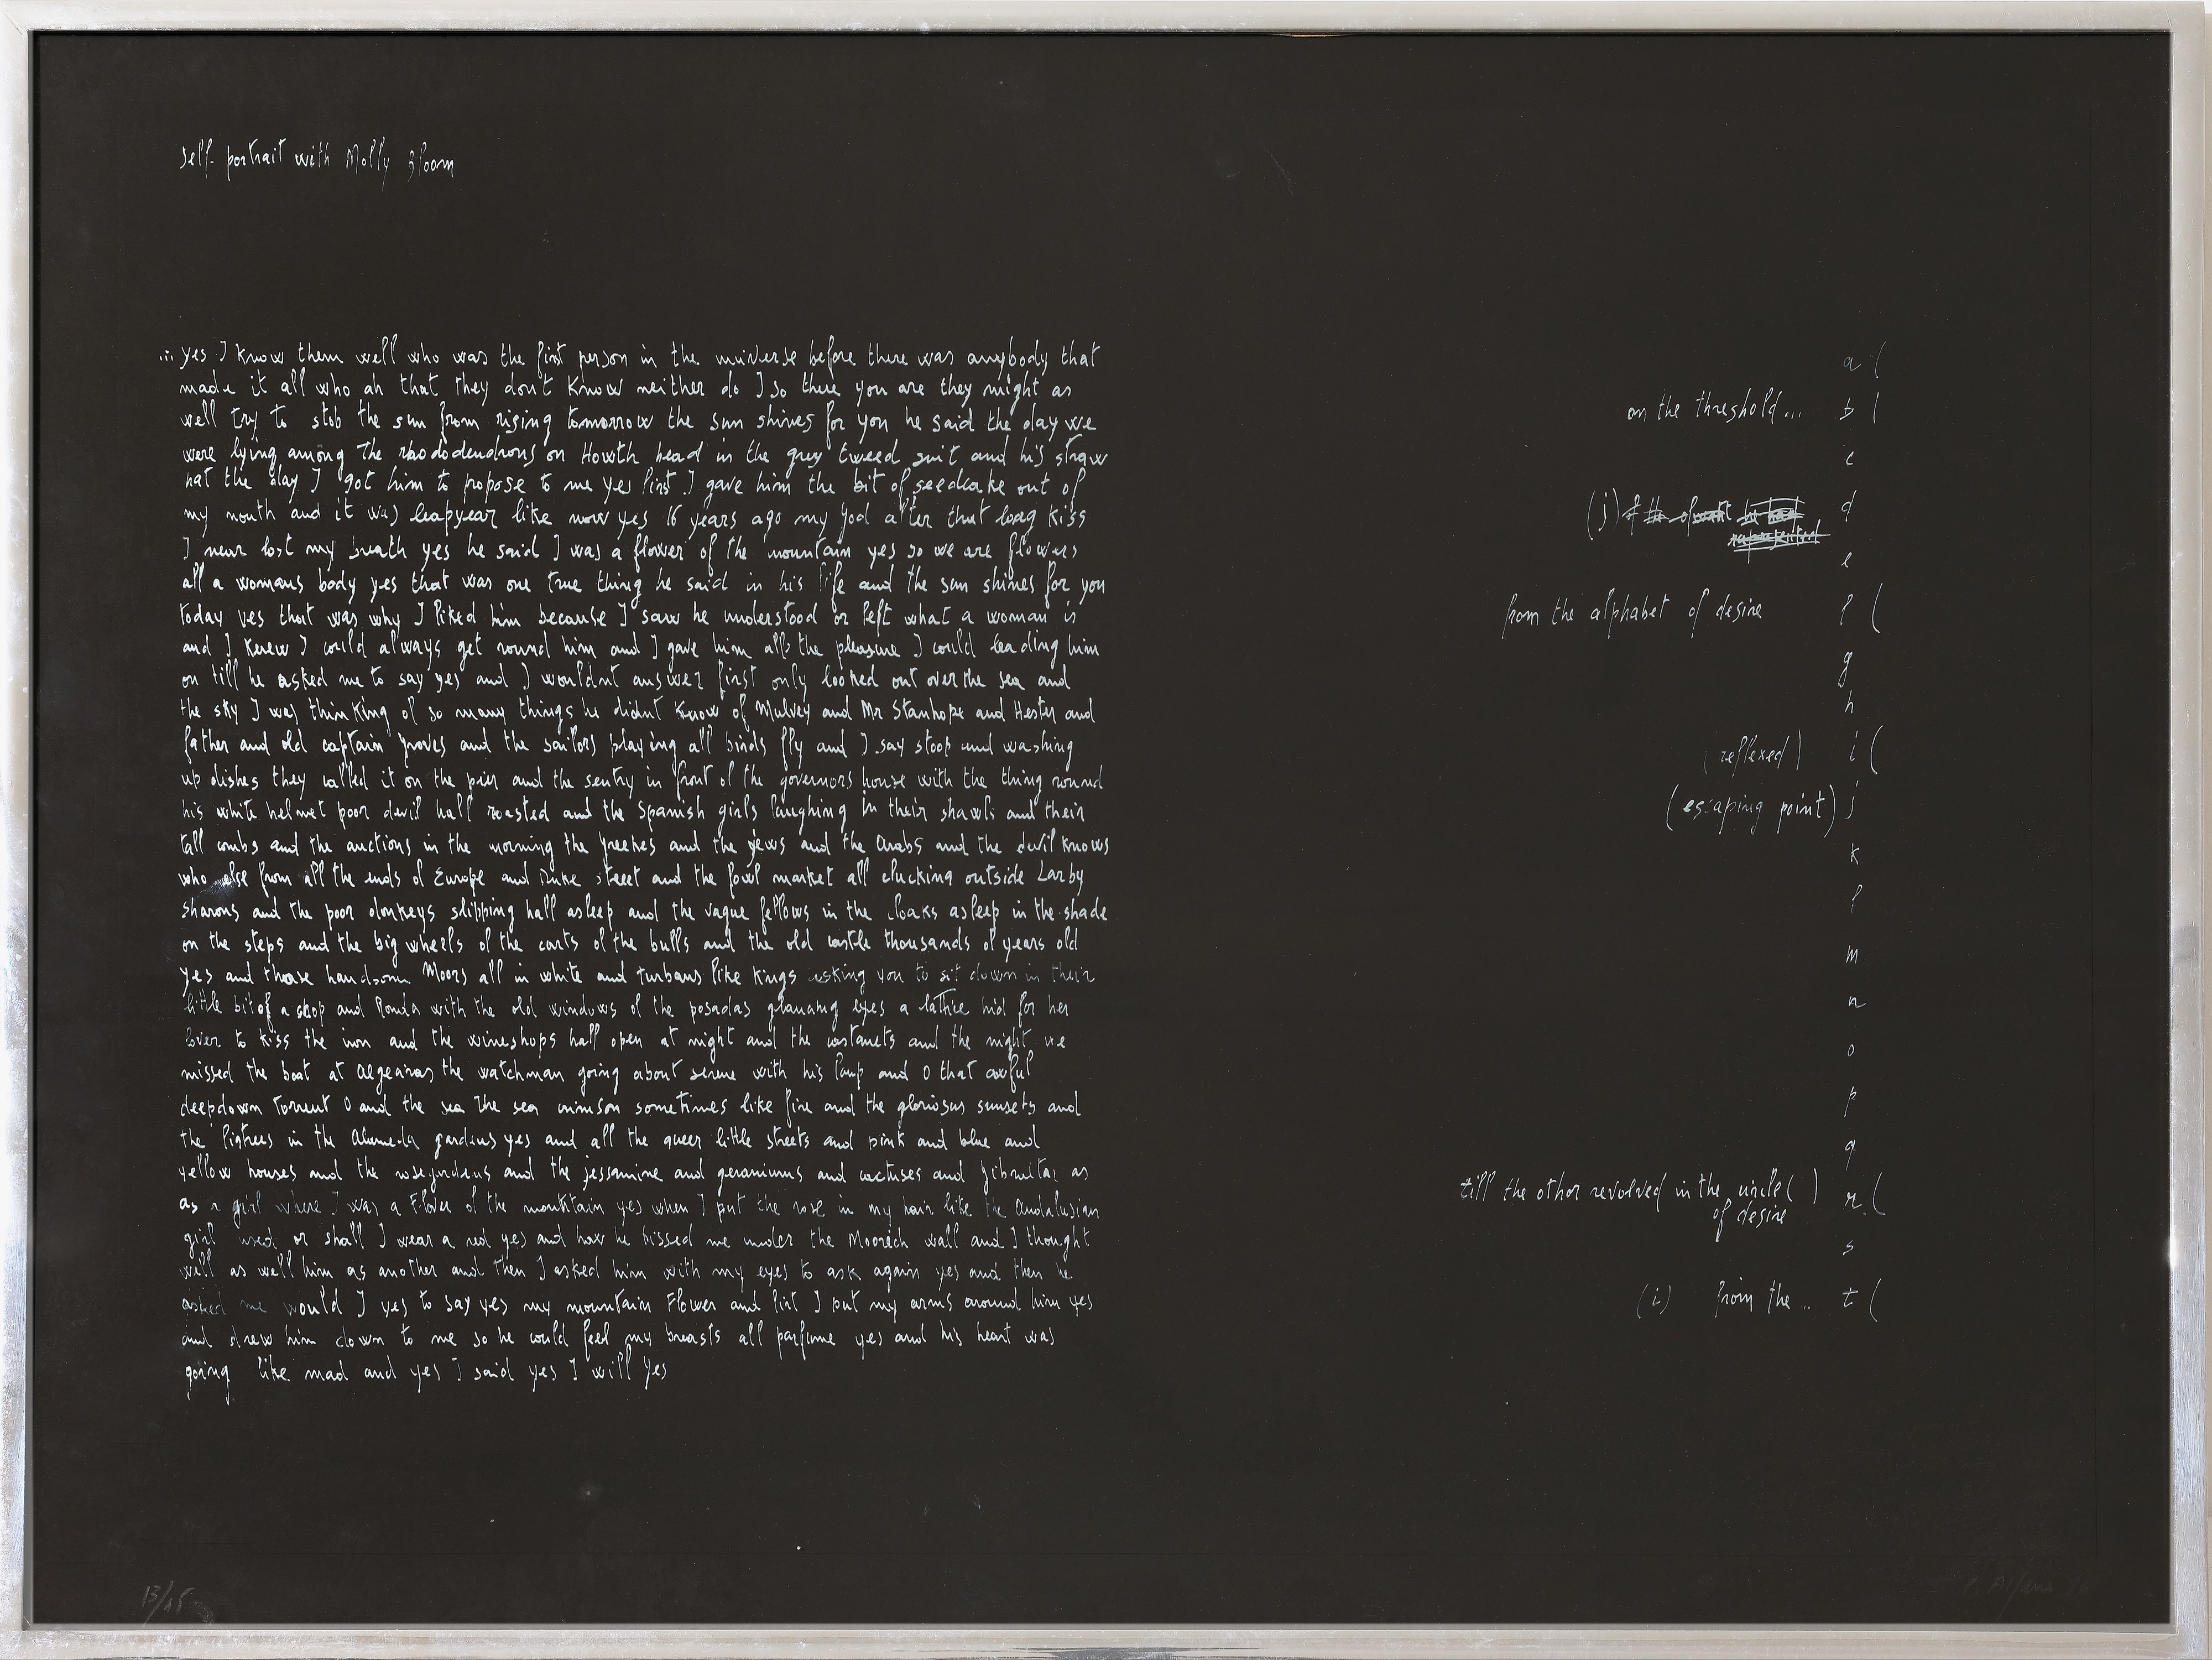 self-portrait with Molly Bloom
... yes I know them well who was the first person in the universe before there was anybody that
made it all who ah that they don't know neither do I so there you are they might as
well try to stob the sun from rising tomorrow the sun shines for you he said the day we
were lying among the rhododendrons on Howth head in the grey tweed suit and his straw
hat the day I got him to propose to me yes first I gave him the bit of seedcake out of
my mouth and it was leapyear like now yes 16 years ago my god after that long kiss
I near lost my breath yes he said I was a flower of the mountain yes so we are flowers
all a womans body yes that was one true thing he said in his life and the sun shines for you
today yes that was why I liked him because I saw he understood or felt what a woman is
and I knew I could always get round him and I gave him all the pleasure I could leading him
on till he asked me to say yes and I wouldnt answer first only looked out over the sea and
the sky I was thinking of so many things he didnt know of Mulvey and Mr Stanhope and Hester and
father and old captain groves and the sailors playing all birds fly and I say stoop and washing
up dishes they called it on the pier and the sentry in front of the governors house with the thing round
his white helmet poor devil half roasted and the Spanish girls laughing in their shawls and their
tall combs and the auctions in the morning the greekes and the jews and the Arabs and the devil knows
who else from all the ends of Europe and Duke street and the fowl market all clucking outside Larby
sharons and the poor donkeys slipping half asleep and the vague fellows in the cloaks asleep in the shade
on the steps and the big wheels of the carts of the bulls and the old castle thousands of years old
yes and those handsome Moors all in white and turbans like kings asking you to sit down in their
little bit of a shop and Ronda with the old windows of the posadas glancing eyes a lattice hid for her
lover to kiss the iron and the wineshops half open at night and the castanets and the night we
missed the boat at Algeciras the watchman going about serene with his lamp and O that awful
deepdown torrent O and the sea the sea crimson sometimes like fire and the glorious sunsets and
the figtrees in the Alameda gardens yes and all the queer little streets and pink and blue and
yellow houses and the rosegardens and the jessamine and geraniums and cactuses and Gibraltar as
as a girl where I was a Flower of the mountain yes when I put the rose in my hair like the Andalusian
girl used or shall I wear a red yes and how he kissed me under the Moorish wall and I thought
well as well him as another and then I asked him with my eyes to ask again yes and then he
asked me would I yes to say yes my mountain Flower and first I put my arms around him yes
and drew him down to me so he could feel my breasts all parfume yes and his heart was
going like mad and yes I said yes I will yes
a (
on the threshold... b (
c
(j) d
e
from the alphabet of desire f (
g
h
(reflexed) i (
(escaping point) j
k
l
m
n
o
p
q
till the other revolved in the circle ( ) r (
of desire
s
(i) from the .. t (
13/45